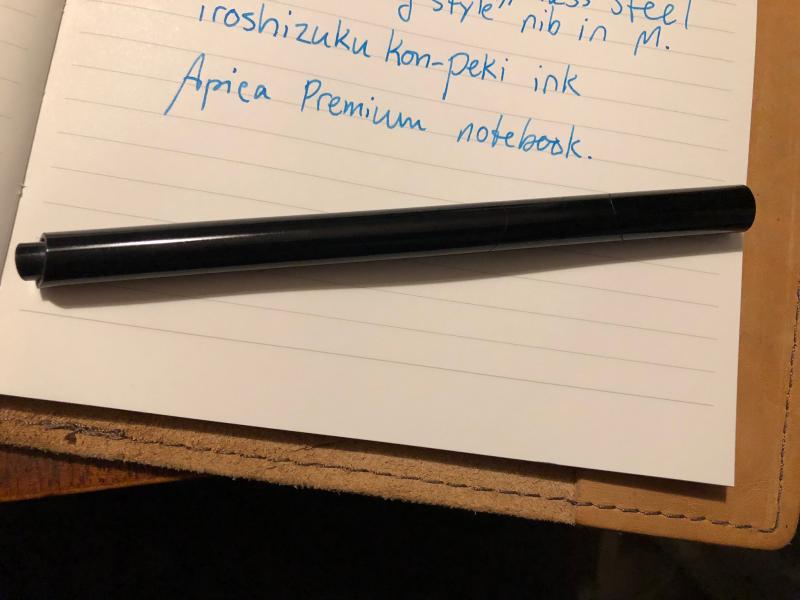 style" steel
nib in M.
iroshizuku kon-peki ink
Apica Premium notebook.